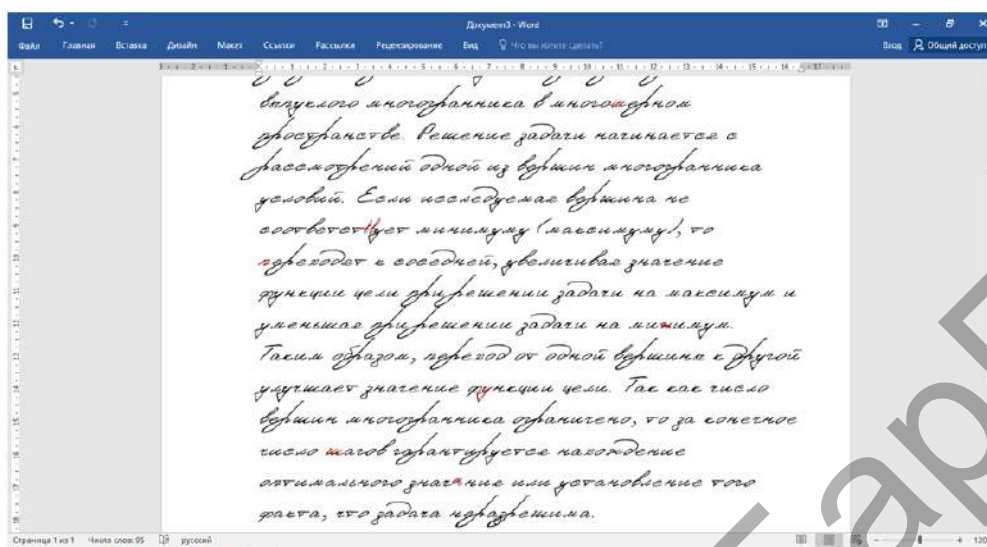 Документ3 - Word
Файл Главная Вставка Дизайн Макет Ссылки Рассылки Рецензирование Вид Что вы хотите сделать? Вход Общий доступ
выпуклого многогранника в многомерном
пространстве. Решение задачи начинается с
рассмотрений одной из вершин многогранника
условий. Если исследуемая вершина не
соответствует минимуму (максимуму), то
переходят к соседней, увеличивая значение
функции цели при решении задачи на максимум и
уменьшая при решении задачи на минимум.
Таким образом, переход от одной вершины к другой
улучшает значение функции цели. Так как число
вершин многогранника ограничено, то за конечное
число шагов гарантируется нахождение
оптимального значение или установление того
факта, что задача неразрешима.
Страница 1 из 1 Число слов: 95 русский 120